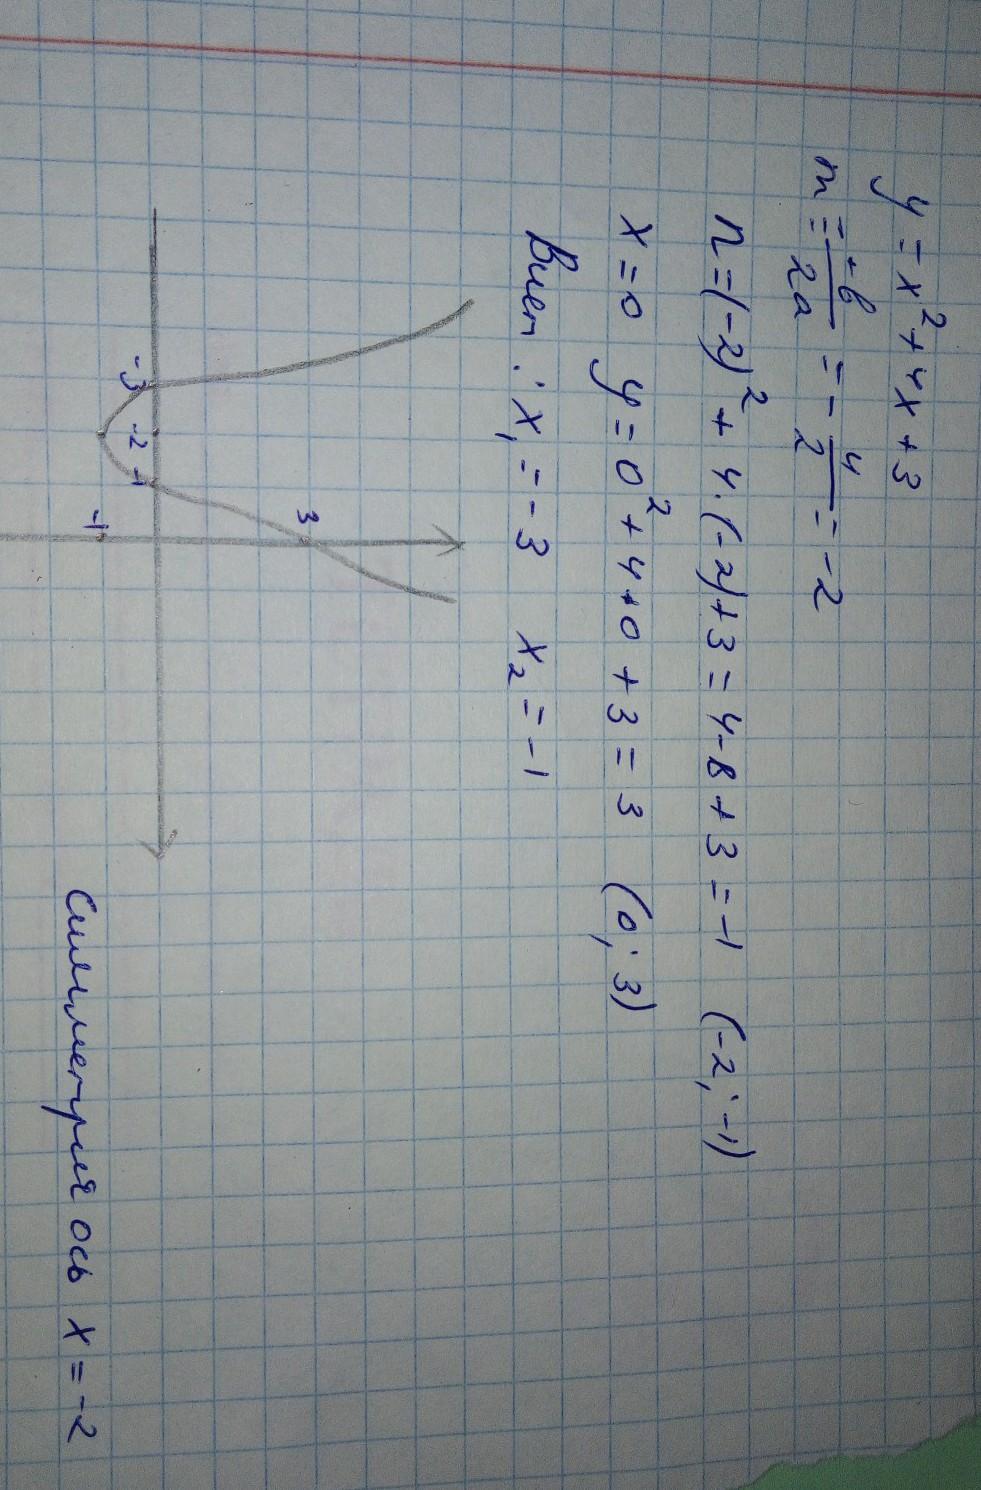 y = x² + 4x + 3
m = -b/2a = - 4/2 = -2
n = (-2)² + 4·(-2) + 3 = 4-8+3 = -1 (-2; -1)
x = 0 y = 0² + 4·0 + 3 = 3 (0; 3)
Виет: x₁ = -3 x₂ = -1
3
-3 -2 -1
-1
Симметрия ось x = -2